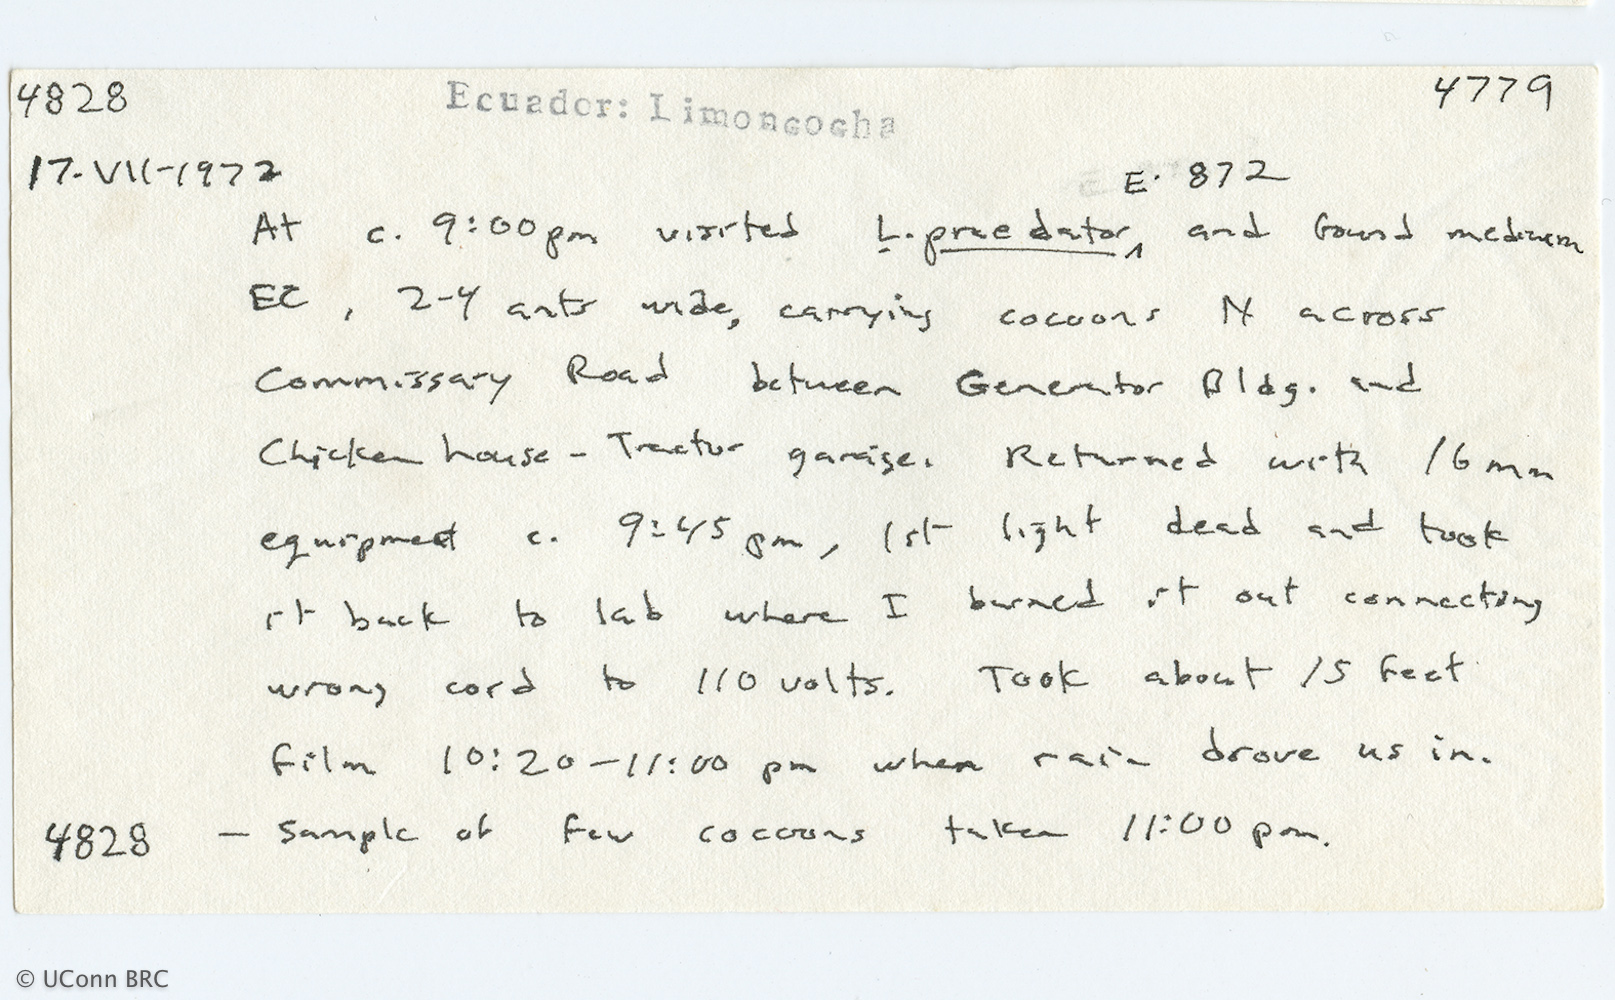 4828 Ecuador: Limoncocha 4779
17-VII-1972 E. 872
At c. 9:00 pm visited L. praedator, and found medium
EC, 2-4 ants wide, carrying cocoons N across
Commissary Road between Generator Bldg. and
Chicken house - Tractor garage. Returned with 16 mm
equipment c. 9:45 pm, 1st light dead and took
it back to lab where I burned it out connecting
wrong cord to 110 volts. Took about 15 feet
film 10:20-11:00 pm when rain drove us in.
4828 - Sample of few cocoons taken 11:00 pm.
© UConn BRC